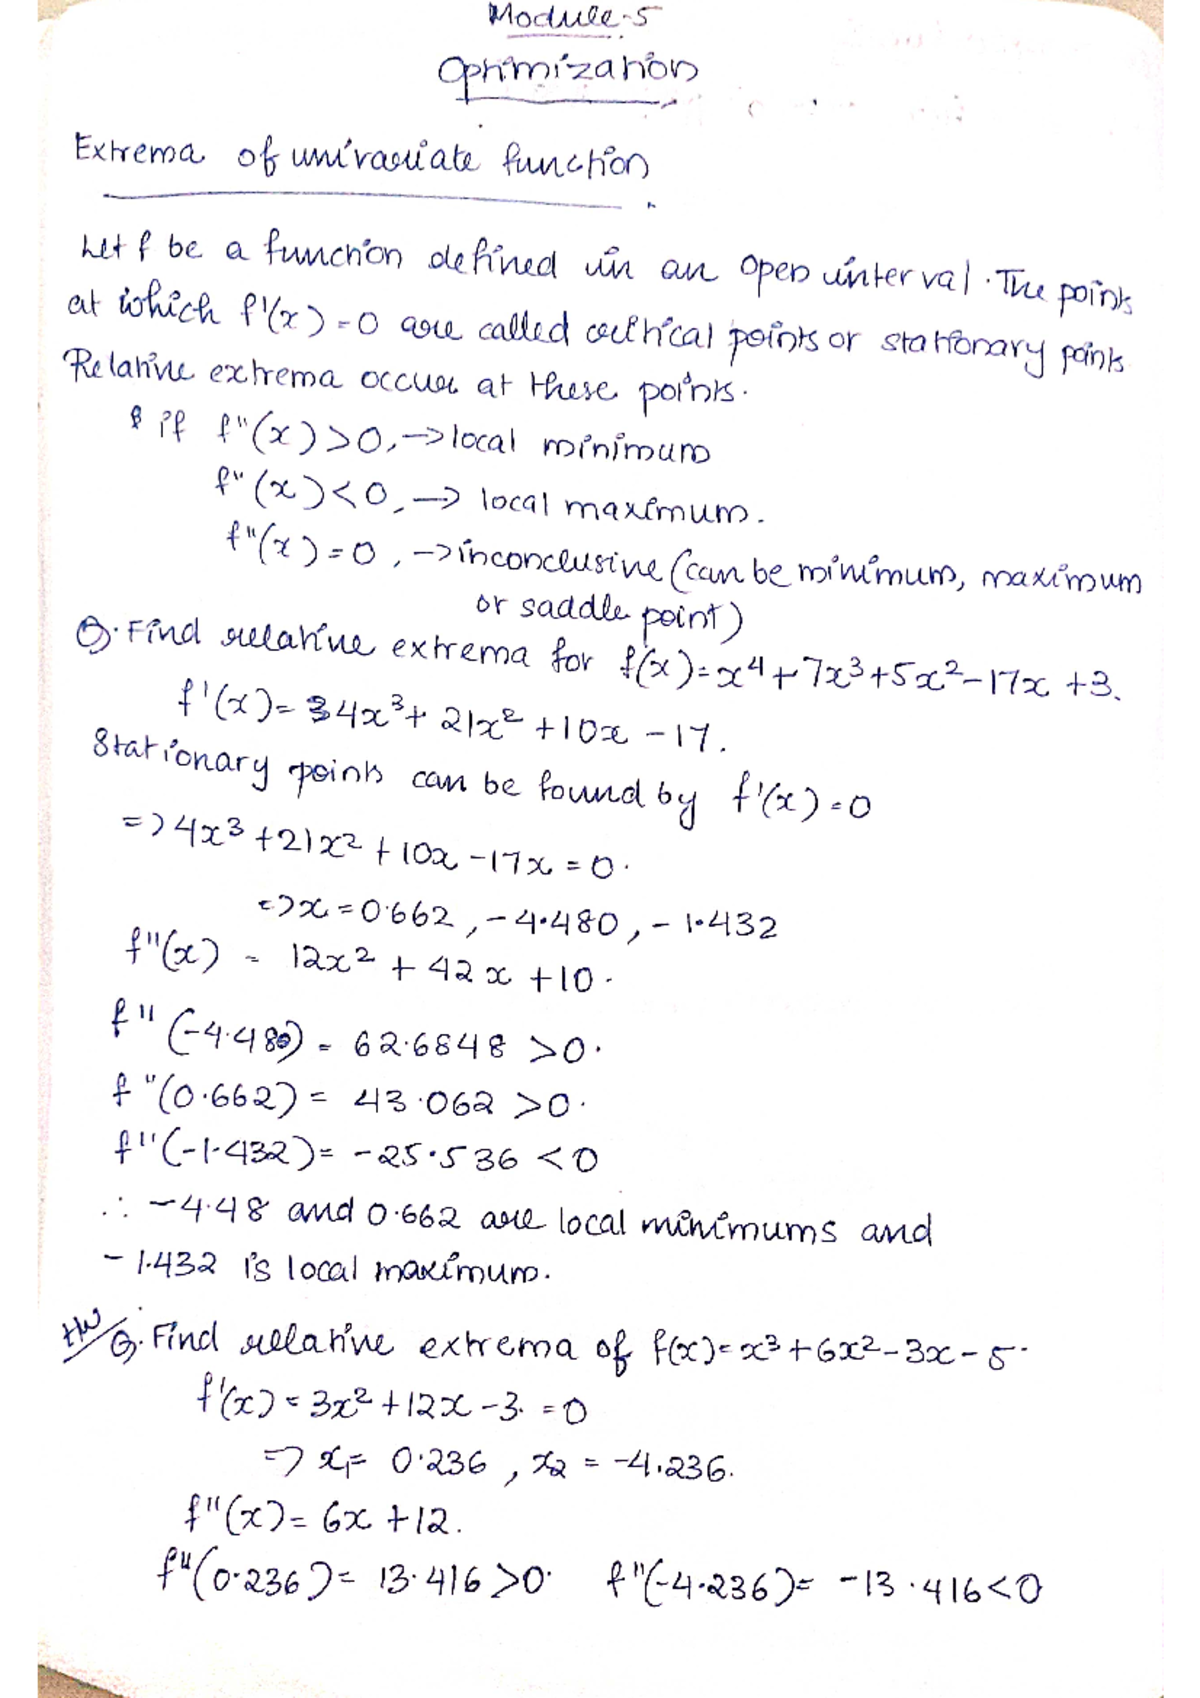 Module-5
Optimization
Extrema of univariate function
Let f be a function defined in an open interval. The points
at which f'(x)=0 are called critical points or stationary points
Relative extrema occur at these points.
if f"(x)>0, →local minimum
f"(x)<0, → local maximum.
f"(x)=0, →inconclusive (can be minimum, maximum
or saddle point)
Q. Find relative extrema for f(x)=x⁴+7x³+5x²-17x +3.
f'(x)= 4x³+ 21x² +10x -17.
Stationary points can be found by f'(x)=0
=> 4x³ +21x² + 10x -17x = 0.
=> x = 0.662, -4.480, -1.432
f"(x) = 12x² + 42x +10.
f"(-4.480) = 62.6848 >0.
f"(0.662) = 43.062 >0.
f"(-1.432) = -25.536 <0
∴ -4.48 and 0.662 are local minimums and
-1.432 is local maximum.
HW/Q. Find relative extrema of f(x)= x³+6x²-3x-5.
f'(x) = 3x²+12x-3. =0
=> x₁= 0.236, x₂ = -4.236.
f"(x)= 6x +12.
f"(0.236)= 13.416>0. f"(-4.236)= -13.416<0